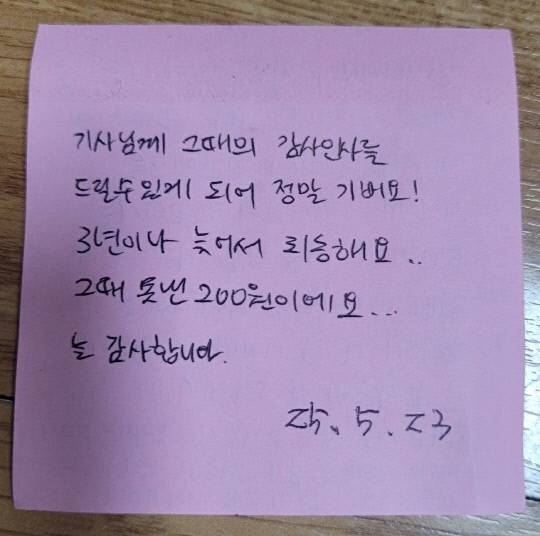 기사님께 그때의 감사인사를
드릴수있게 되어 정말 기버요!
3년이나 늦어서 죄송해요..
그때 못낸 200원이에요...
늘 감사합니다.
25. 5. 23